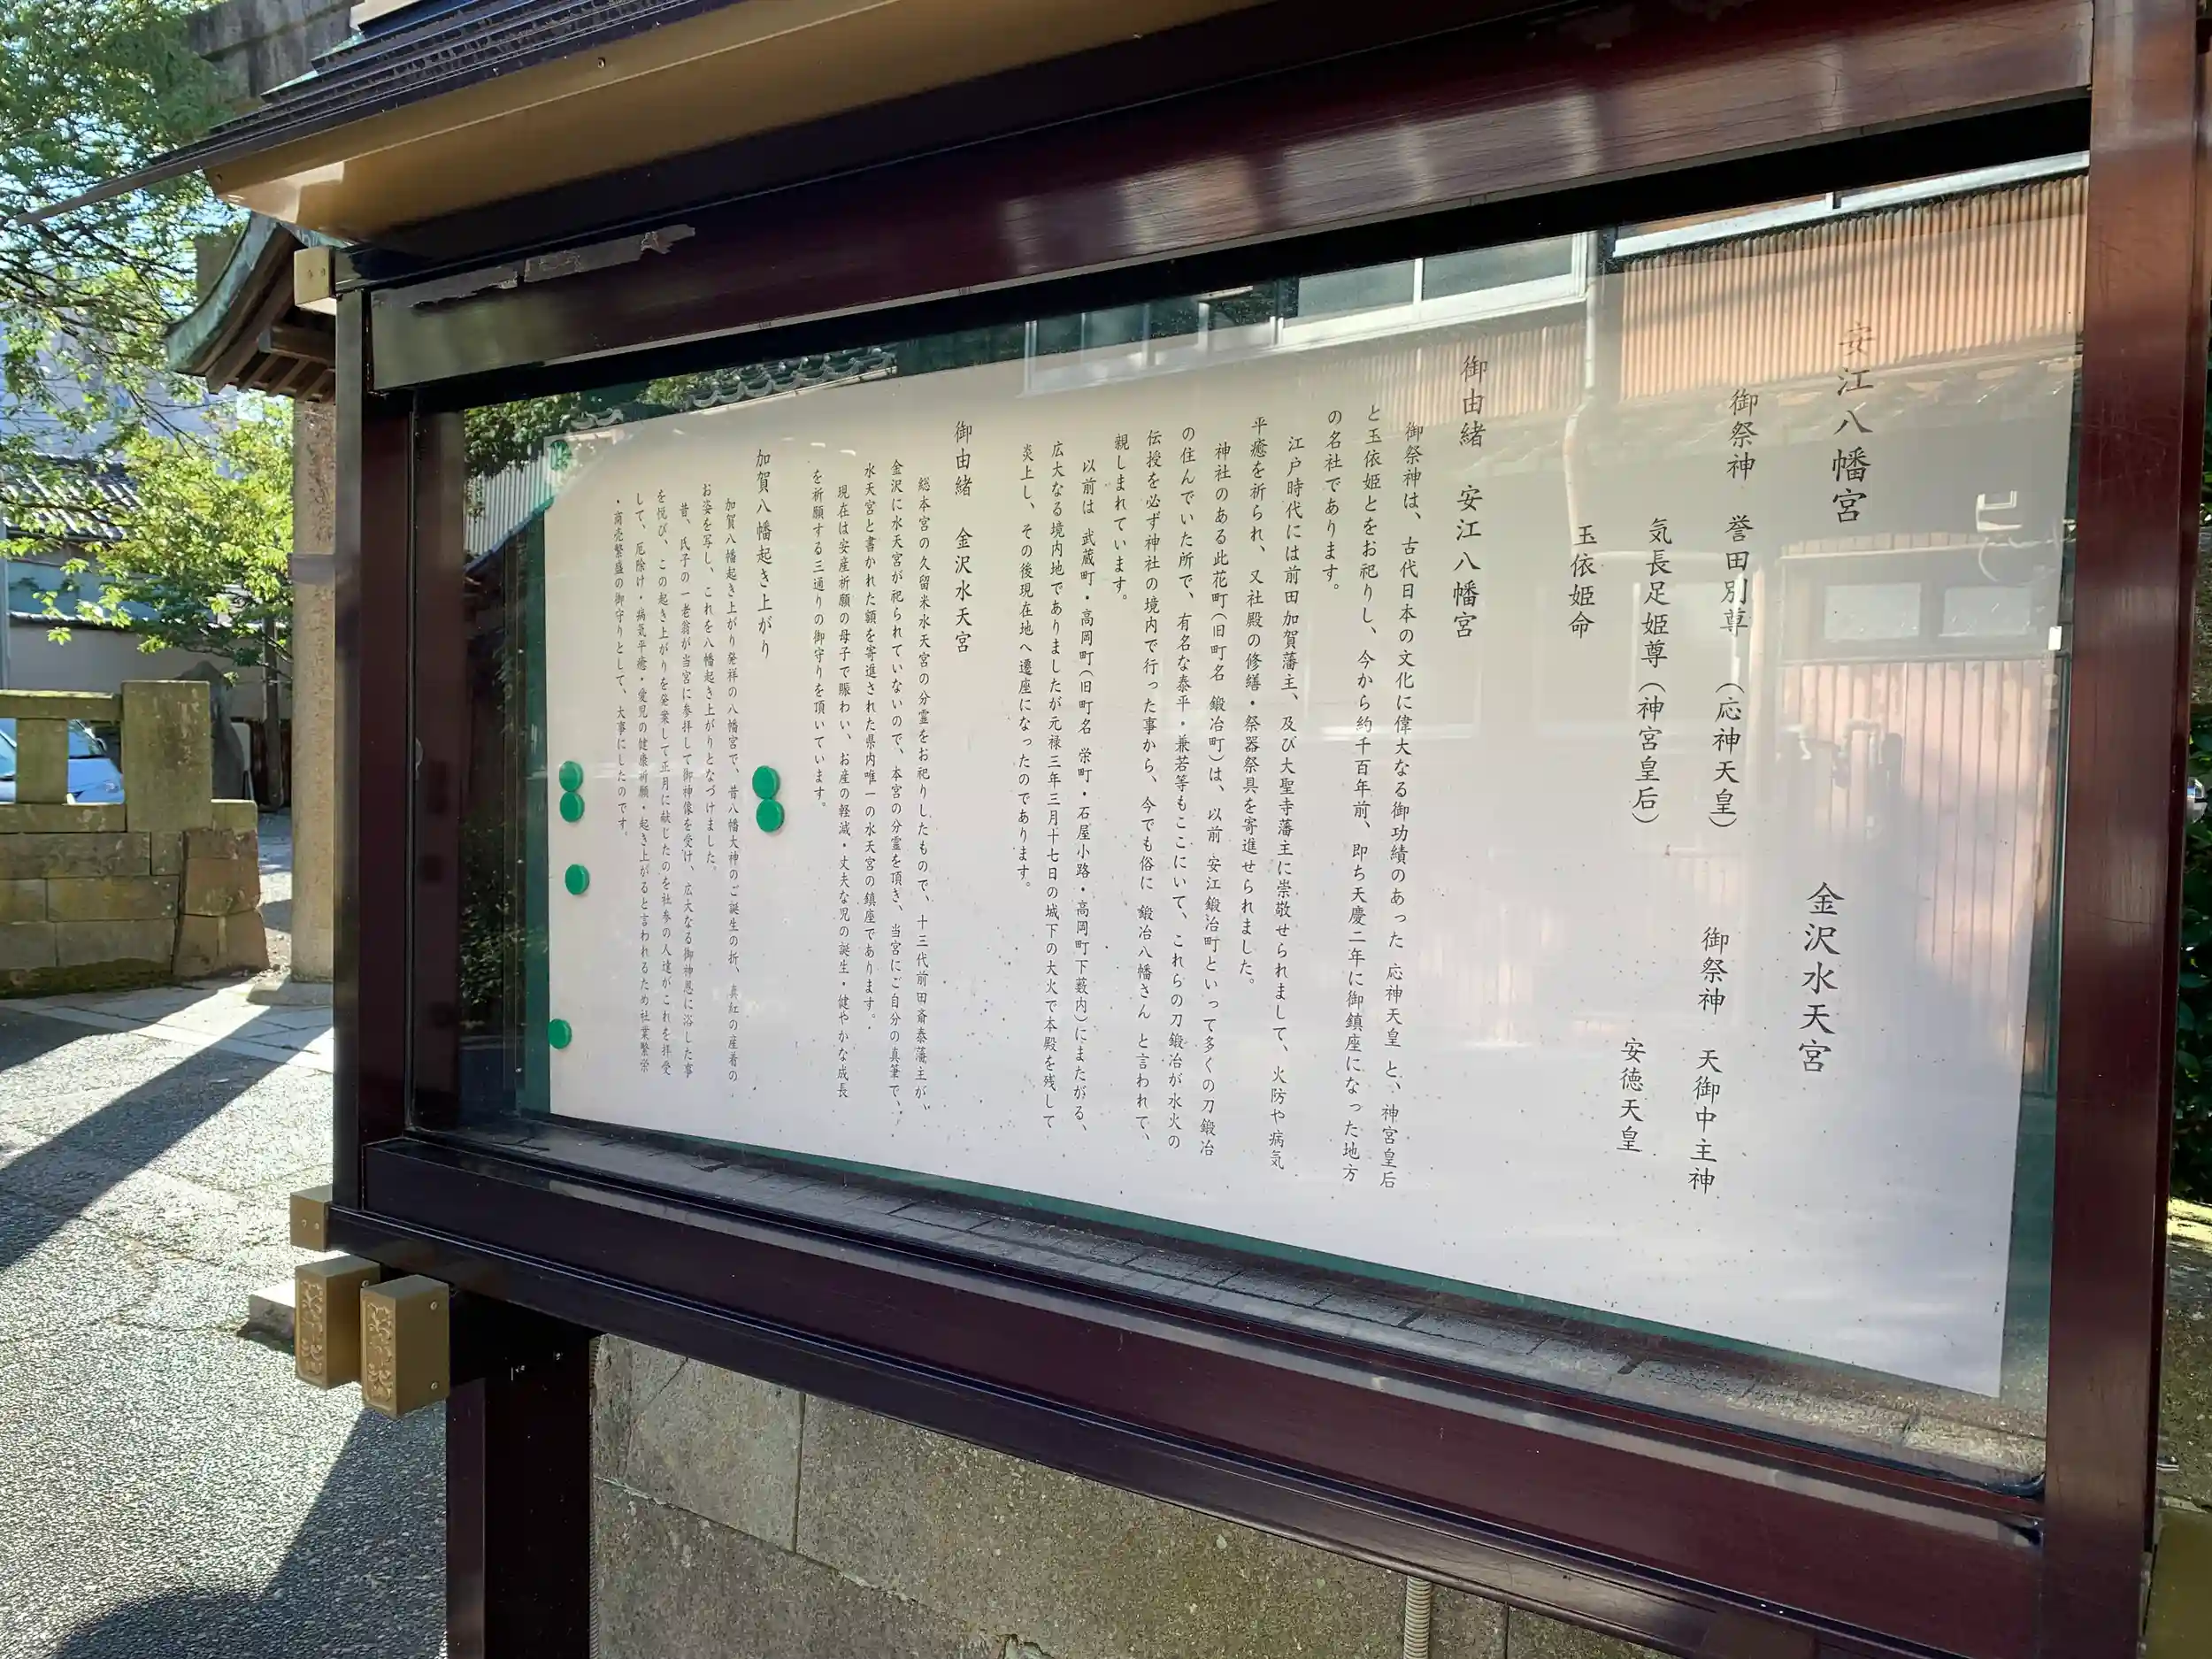 安江八幡宮
御祭神 誉田別尊(応神天皇)
気長足姫尊(神宮皇后)
玉依姫命
金沢水天宮
御祭神 天御中主神
安徳天皇
御由緒 安江八幡宮
御祭神は、古代日本の文化に偉大なる御功績のあった 応神天皇 と、神宮皇后
と玉依姫とをお祀りし、今から約千百年前、即ち天慶二年に御鎮座になった地方
の名社であります。
江戸時代には前田加賀藩主、及び大聖寺藩主に崇敬せられまして、火防や病気
平癒を祈られ、又社殿の修繕・祭器祭具を寄進せられました。
神社のある此花町(旧町名 鍛冶町)は、以前 安江鍛冶町といって多くの刀鍛冶
の住んでいた所で、有名な泰平・兼若等もここにいて、これらの刀鍛冶が水火の
伝授を必ず神社の境内で行った事から、今でも俗に 鍛冶八幡さん と言われて、
親しまれています。
以前は 武蔵町・高岡町(旧町名 栄町・石屋小路・高岡町下薮内)にまたがる、
広大なる境内地でありましたが元禄三年三月十七日の城下の大火で本殿を残して
炎上し、その後現在地へ遷座になったのであります。
御由緒 金沢水天宮
総本宮の久留米水天宮の分霊をお祀りしたもので、十三代前田斎泰藩主が、
金沢に水天宮が祀られていないので、本宮の分霊を頂き、当宮にご自分の真筆で、
水天宮と書かれた額を寄進された県内唯一の水天宮の鎮座であります。
現在は安産祈願の母子で賑わい、お産の軽減・丈夫な児の誕生・健やかな成長
を祈願する三通りの御守りを頂いています。
加賀八幡起き上がり
加賀八幡起き上がり発祥の八幡宮で、昔八幡大神のご誕生の折、真紅の産着の
お姿を写し、これを八幡起き上がりとなづけました。
昔、氏子の一老翁が当宮に参拝して御神像を受け、広大なる御神恩に浴した事
を悦び、この起き上がりを発案して正月に献じたのを社参の人達がこれを拝受
して、厄除け・病気平癒・愛児の健康祈願・起き上がると言われるため社業繁栄
・商売繁盛の御守りとして、大事にしたのです。